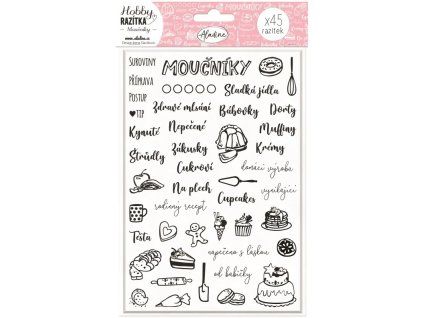 Hobby
RAZÍTKA
Moučníky
www.aladine.cz
MOUČNÍKY
Aladine
x45
razítek
SUROVINY
PŘÍPRAVA
POSTUP
TIP
MOUČNÍKY
Sladká jídla
Zdravé mlsání
Bábovky
Dorty
Kynuté
Nepečené
Muffiny
Štrůdly
Zákusky
Krémy
Cukroví
domácí výroba
Na plech
vynikající
rodinný recept
Cupcakes
Těsta
napečeno s láskou
od babičky